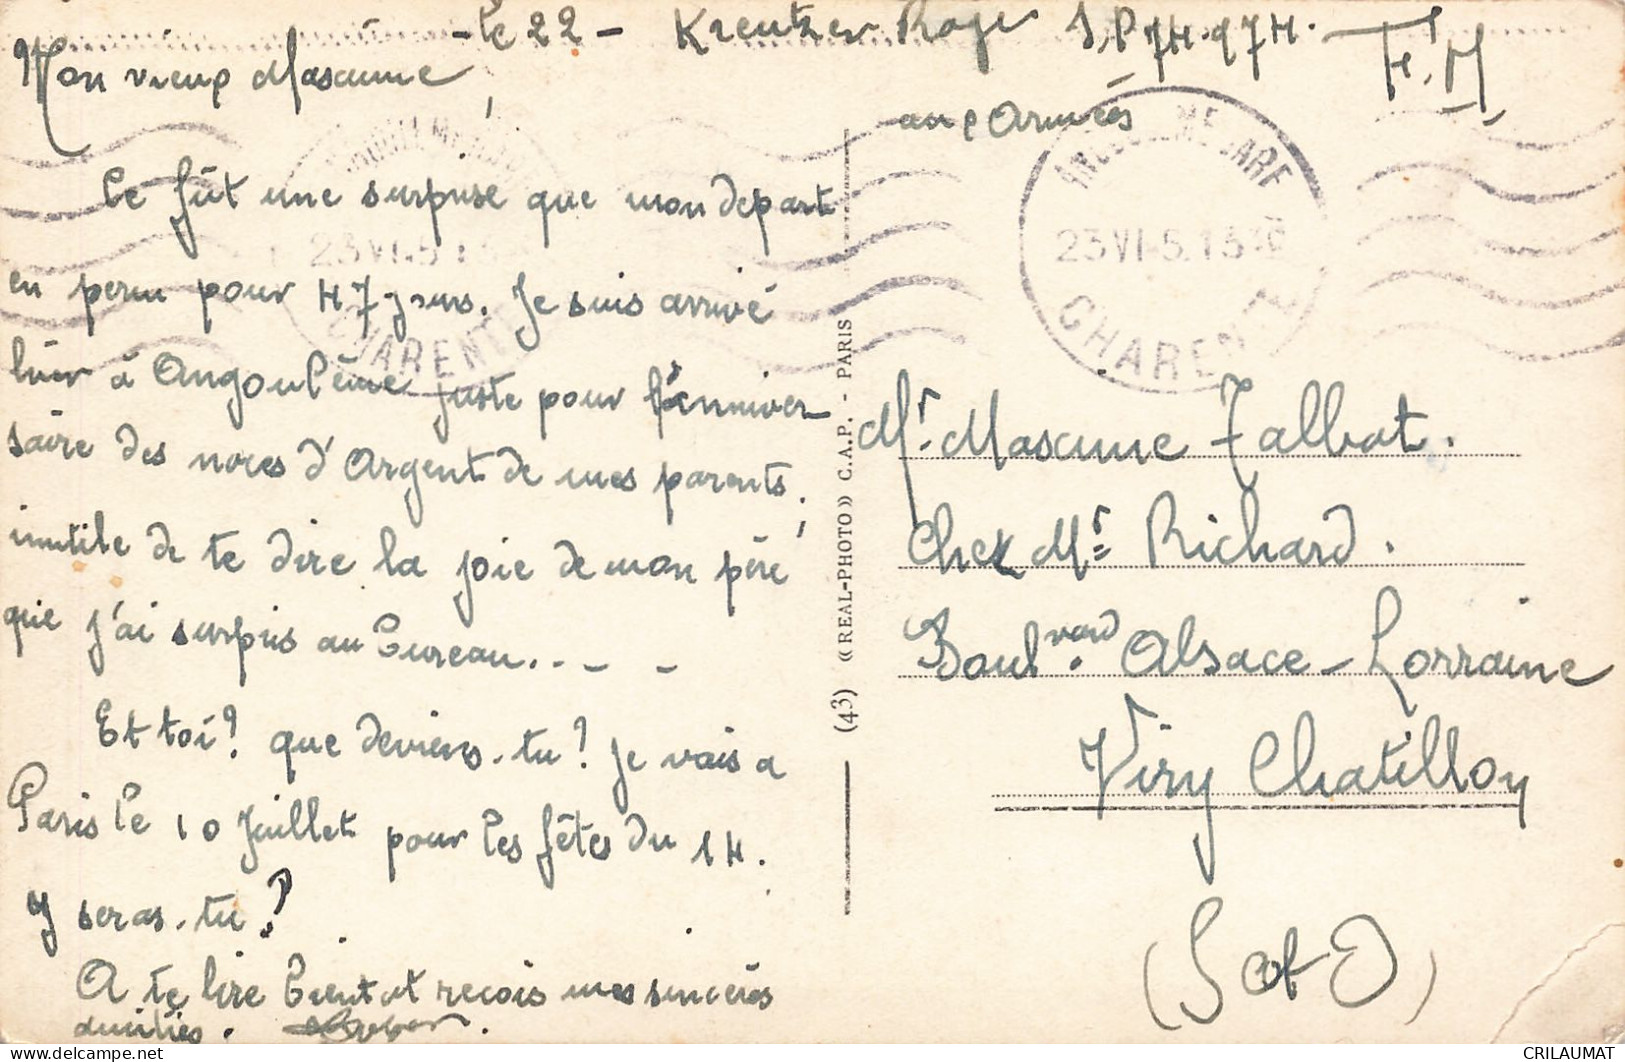 - le 22 - Kreutzer Roger S.P. 74.974. F.M.
aux Armées
Mon vieux Maxime,
Ce fût une surprise que mon départ
en perm pour 47 jours. Je suis arrivé
hier à Angoulême juste pour l'anniver
saire des noces d'Argent de mes parents.
inutile de te dire la joie de mon père
que j'ai surpris au bureau... - -
Et toi? que deviens-tu? Je vais a
Paris le 10 Juillet pour les fêtes du 14.
Y seras-tu?
A te lire bientot reçois mes sincères
amitiés.
ANGOULEME GARE
23 VI-5.1530
CHARENTE
CHARENTE
(43) «REAL-PHOTO» C.A.P. - PARIS
Mr. Maxime Talbot.
Chez Mr Richard.
Boulvard Alsace-Lorraine
Viry Chatillon
(S et O)
CRILAUMAT